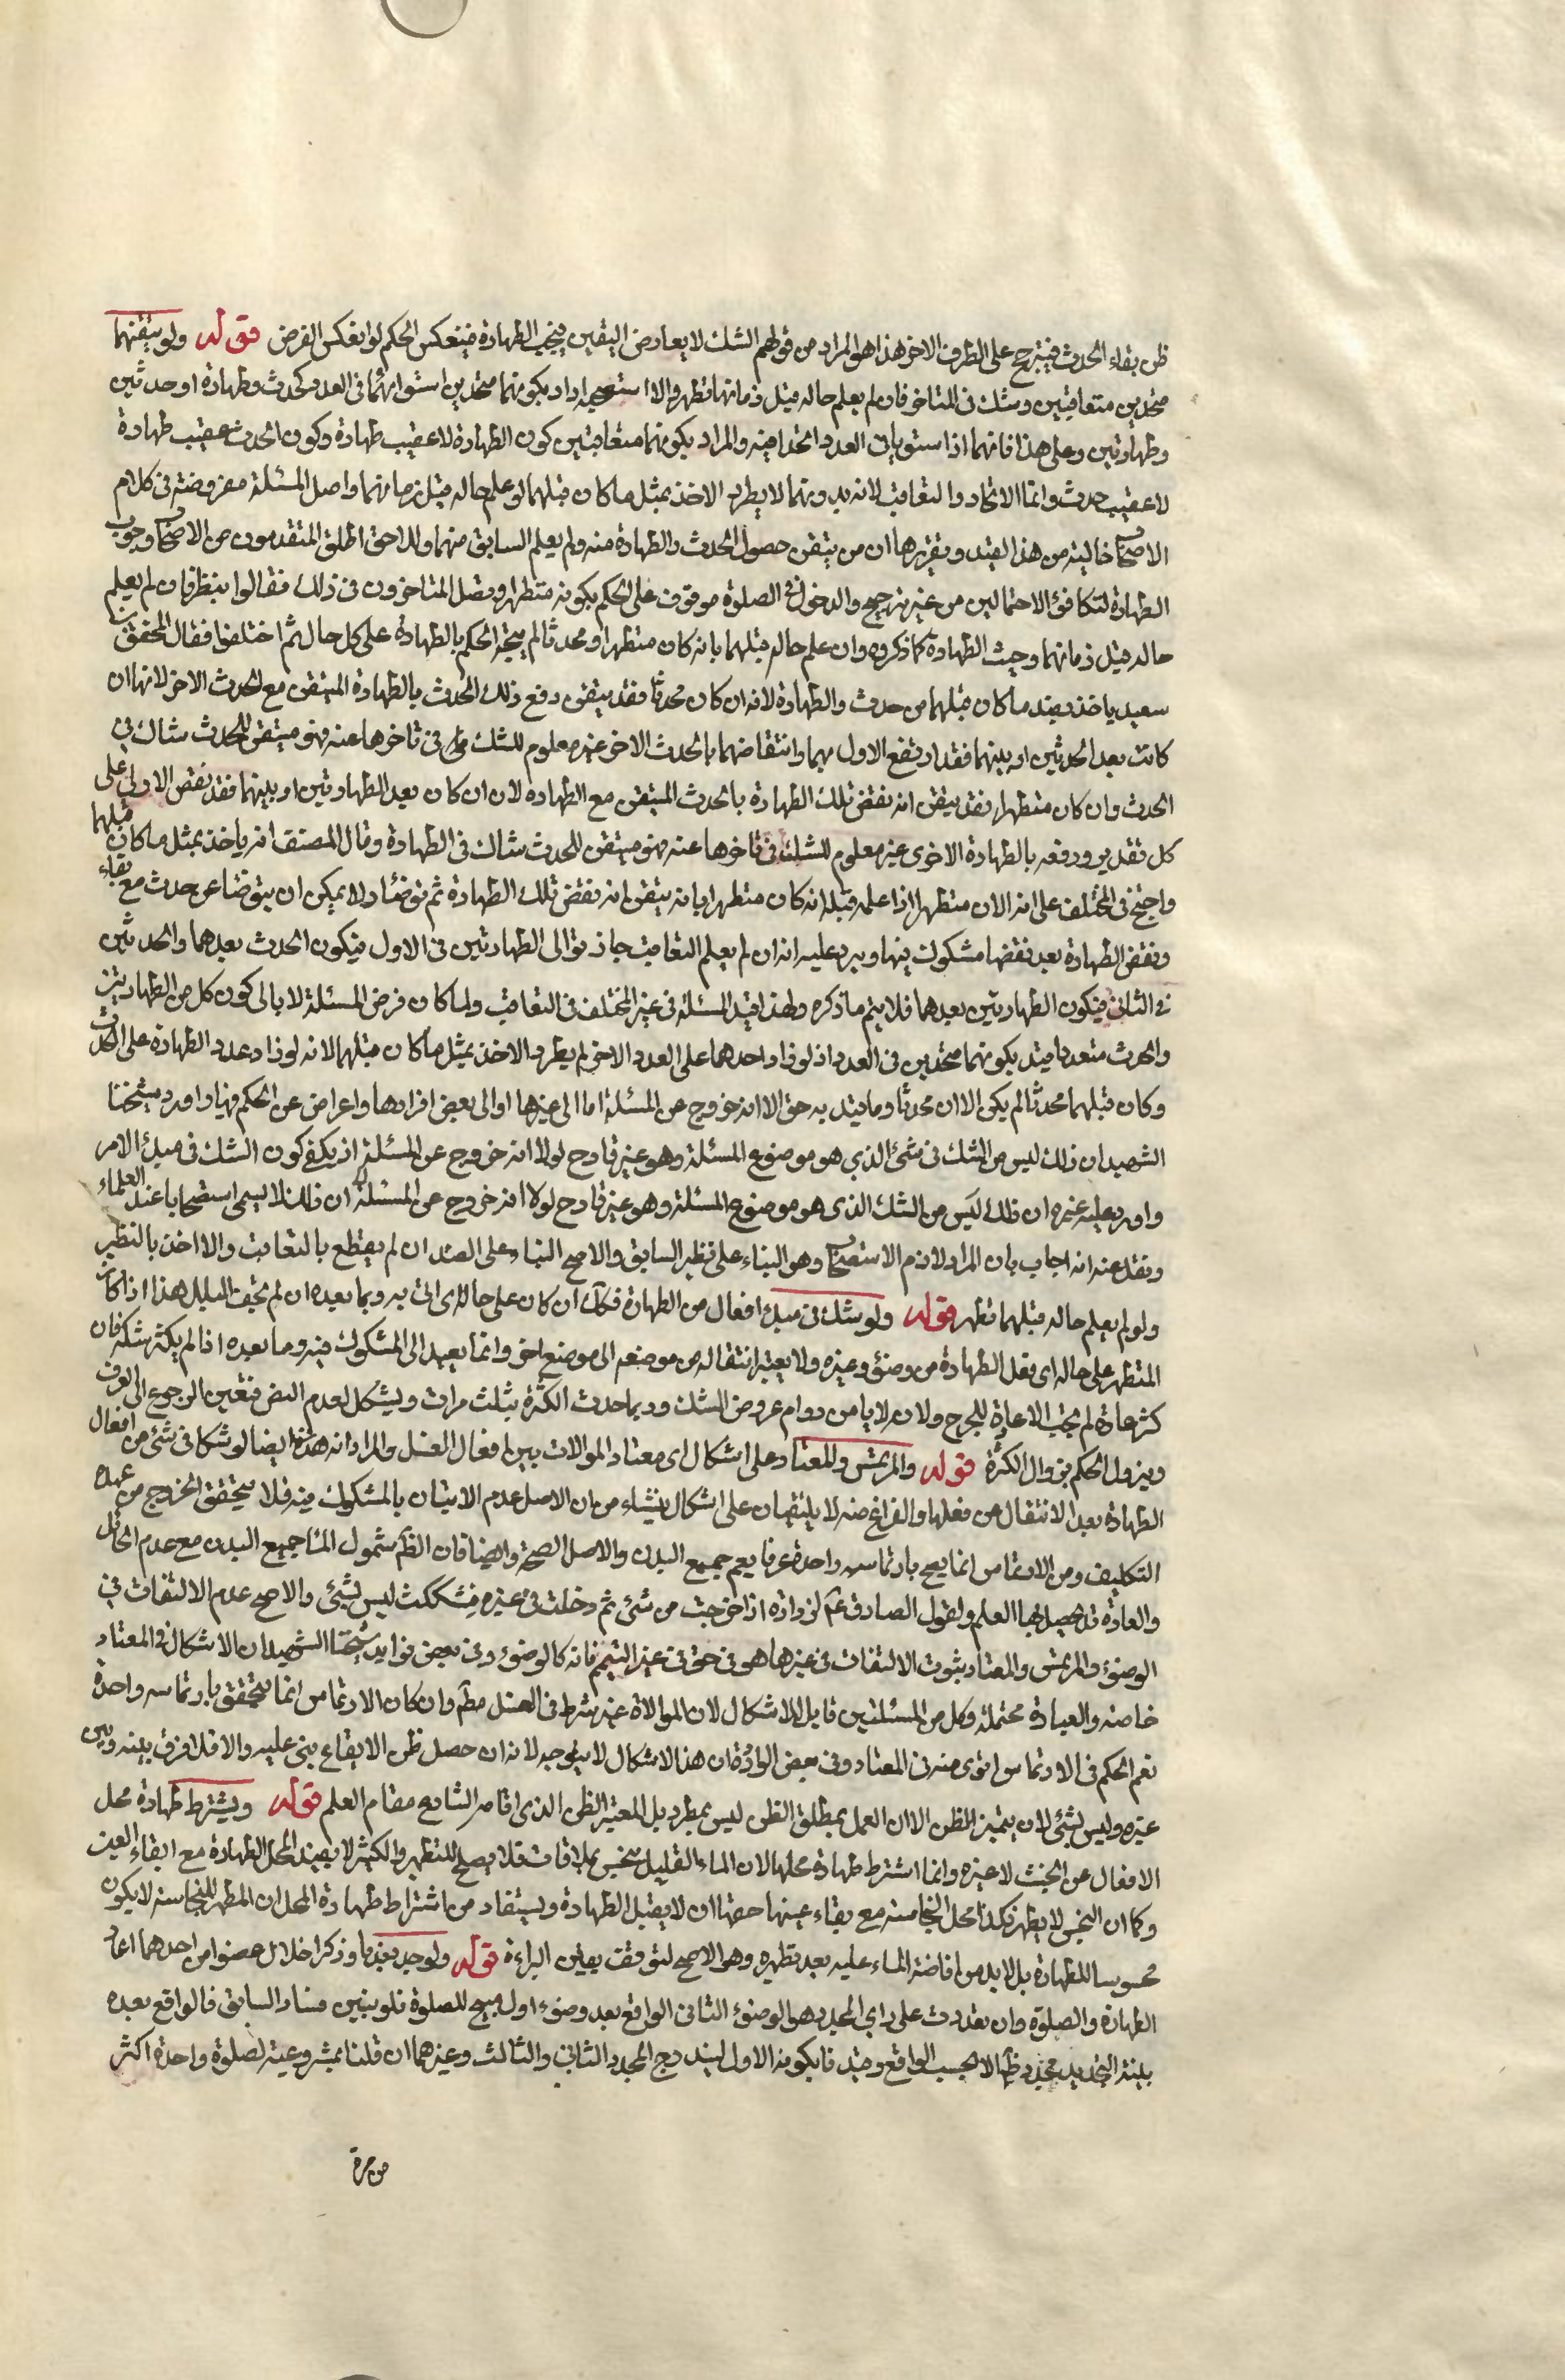 ظن بقاء الحدث فيترجح على الطرف الاخر هذا هو المراد من قولهم الشك لا يعارض اليقين فيجب الطهارة فينعكس الحكم لو انعكس الفرض قوله ولو تيقنهما
متحدين متعاقبين وشك في المتاخر فان لم يعلم حاله قبل زمانهما تطهر والا استصحبه اراد بكونهما متحدين استوائهما في العدد كحدث وطهارة او حدثين
وطهارتين وعلى هذا فانهما اذا استويا في العدد اتحدا فيه والمراد بكونهما متعاقبين كون الطهارة لا عقيب طهارة وكون الحدث عقيب طهارة
لا عقيب حدث وانما الاتحاد والتعاقب لانه بدونهما لا يطرد الاخذ بمثل ما كان قبلهما لو علم حاله قبل زمانهما واصل المسئلة مفروضة في كلام
الاصحاب خالية من هذا القيد وتقريرها ان من تيقن حصول الحدث والطهارة منه ولم يعلم السابق منهما واللاحق اطلق المتقدمون من الاصحاب وجوب
الطهارة لتكافؤ الاحتمالين من غير ترجيح والدخول في الصلوة موقوف على الحكم بكونه متطهرا وفصل المتاخرون في ذلك فقالوا ينظر فان لم يعلم
حاله قبل زمانهما وجبت الطهارة كما ذكروه وان علم حاله قبلهما بانه كان متطهرا او محدثا لم يتجه الحكم بالطهارة على كل حال ثم اختلفوا فقال المحقق بن
سعيد ياخذ بضد ما كان قبلهما من حدث والطهارة لانه ان كان محدثا فقد تيقن رفع ذلك الحدث بالطهارة المتيقن مع الحدث الاخر لانها ان
كانت بعد الحدثين او بينهما فقد ارتفع الاول بهما وانتقاضها بالحدث الاخر غير معلوم للشك في تاخرها عنه فهو متيقن للحدث شاك في
الحدث وان كان متطهرا فقد تيقن انه نقض تلك الطهارة بالحدث المتيقن مع الطهارة لان ان كان بعد الطهارتين او بينهما فقد نقض الاولى على
كل تقدير ورفعه بالطهارة الاخرى غير معلوم للشك في تاخرها عنه فهو متيقن للحدث شاك في الطهارة وقال المصنف انه ياخذ بمثل ما كان قبلهما
واحتج في المختلف على انه الان متطهرا اذا علم قبله انه كان متطهرا بانه تيقن انه نقض تلك الطهارة ثم توضأ ولا يمكن ان يتوضأ عن حدث مع بقاء
ونقض الطهارة بعد نقضها مشكوك فيها ويرد عليه انه ان لم يعلم التعاقب جاز توالى الطهارتين في الاول فيكون الحدث بعدهما والحدثين
في الثاني فيكون الطهارتين بعدهما فلا يتم ما ذكره ولهذا قيد المسئلة في غير المختلف في التعاقب ولما كان فرض المسئلة لا بالى كون كل من الطهارتين
والحدث متعددا قيد بكونهما متحدين في العدد اذ لو زاد احدهما على العدد الاخر لم يطرد الاخذ بمثل ما كان قبلهما لانه لو زاد عدد الطهارة على الحدث
وكان قبلهما محدثا لم يكن الا ان محدثا وما قيد به حق الا انه خروج عن المسئلة اما الى غيرها او الى بعض افرادها واعراض عن الحكم فيها واورد شيخنا
الشهيد ان ذلك ليس من الشك في شئ الذي هو موضوع المسئلة وهو غير قادح لولا انه خروج عن المسئلة اذ يكفي كون الشك في مبدا الامر
واورد عليه غيره ان ذلك ليس من الشك الذي هو موضوع المسئلة وهو غير قادح لولا انه خروج عن المسئلة ان ذلك لا يسمى استصحابا عند العلماء
ونقل عنه انه اجاب بان المراد لازم الاستصحاب وهو البناء على نظير السابق والاصح البناء على الضد ان لم يقطع بالتعاقب والا اخذ بالنظير
ولو لم يعلم حاله قبلهما تطهر قوله ولو شك في شئ من افعال الطهارة فكك ان كان على حاله اى اتى به وبما بعده ان لم يجف البلل هذا اذا كان
المتطهر على حاله اى فعل الطهارة من وضوء وغيره ولا يعتبر انتقاله من موضعه الى موضع اخر وانما يعيد الى المشكوك فيه وما بعده اذا لم يكثر شكه فان
كثر عادة لم تجب الاعادة للحرج ولانه لا يامن دوام عروض الشك وربما حدث الكثرة بثلث مرات ويشكل لعدم النص فتعين الرجوع الى العرف
ويزول الحكم بزوال الكثرة قوله والمرتمس والمعتاد على اشكال اى معتاد الموالات بين افعال الغسل والمراد انه هذه ايضا لو شكا في شئ من افعال
الطهارة بعد الانتقال من فعلها والفراغ منه لا يلتفتان على اشكال ينشاء من ان الاصل عدم الاتيان بالمشكوك فيه فلا يتحقق الخروج من عهدة
التكليف ومن الارتماس انما يصح بارتماسه واحدة عرفا يعم جميع البدن والاصل الصحة وايضا فان الظّ شمول الماء جميع البدن مع عدم الحائل
والعادة قد يحصل بها العلم ولقول الصادق عم لزرارة اذا خرجت من شئ ثم دخلت في غيره فشككت ليس بشئ والاصح عدم الالتفات في
الوضوء والمرتمس والمعتاد بثبوت الالتفات في غيرها هو في حق في غير التيمم فانه كالوضوء وفى بعض فوايد شيخنا الشهيد ان الاشكال في المعتاد
خاصة والعبارة محتملة وكل من المسئلتين قابل للاشكال لان الموالاة غير شرط في الغسل مطّ وان كان الارتماس انما يتحقق بارتماسه واحدة
نعم الحكم في الارتماس اقوى منه في المعتاد وفى بعض ان هذا الاشكال لا يتوجه لانه ان حصل ظن الايقاع بنى عليه والا فلا فرق بينه وبين
غيره وليس بشئ لان يتميز الظن الا ان العمل بمطلق الظن ليس بمطرد بل المعتبر الظن الذي اقامه الشارع مقام العلم قوله ويشترط طهارة محل
الافعال عن الخبث لا غيره وانما اشترط طهارة محلها لان الماء القليل ينجس بملاقات فلا يصلح للتطهر والكثير لا يفيد المحل الطهارة مع ابقاء العين
وكما ان النجس لا يطهر فكذا محل النجاسة مع بقاء عينها حقها ان لا يقبل الطهارة ويستفاد من اشتراط طهارة المحل ان المطهر للنجاسة لا يكون
محسوبا للطهارة بل لا بد من افاضة الماء عليه بعد تطهره وهو الاصح لتوقف يقين البراءة قوله ولو جدد ندبا وذكر اخلال عضو من احدهما اعاد
الطهارة والصلوة وان تعددت على راي المجدد هو الوضوء الثاني الواقع بعد وضوء اول مبيح للصلوة فلو تبين فساد السابق فالواقع بعده
بنية التجديد مجدد ظّ لا بحسب الواقع وقيد فا بكونه الاول ليندرج المجدد الثاني والثالث وغيرهما ان قلنا بمشروعيته لصلوة واحدة اكثر
من مرة